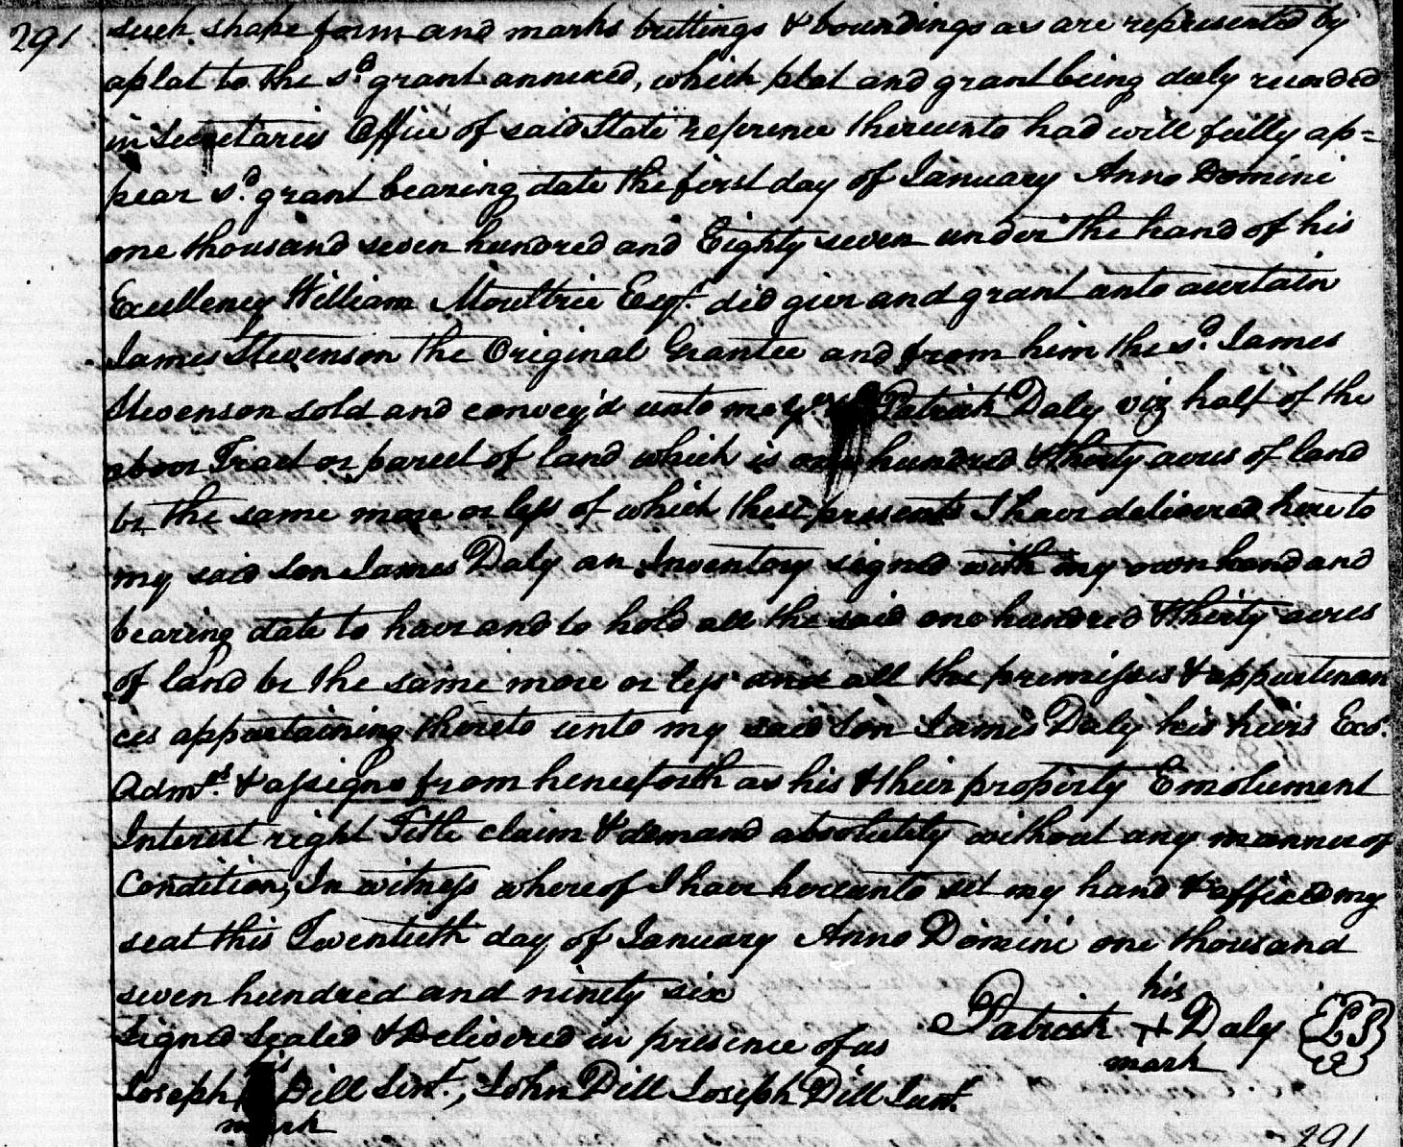 291 such shape form and marks buttings & boundings as are represented by
a plat to the sd. grant annexed, which plat and grant being duly recorded
in Secretaries Office of said State reference thereunto had will fully ap=
pear sd. grant bearing date the first day of January Anno Domini
one thousand seven hundred and Eighty seven under the hand of his
Excellency William Moultrie Esqr. did give and grant unto a certain
James Stevenson the Original Grantee and from him the sd. James
Stevenson sold and convey'd unto me Patrick Daly viz half of the
above Tract or parcel of land which is one hundred & thirty acres of land
be the same more or less of which these presents I have delivered here to
my said Son James Daly an Inventory signed with my own hand and
bearing date to have and to hold all the said one hundred & thirty acres
of land be the same more or less and all the premisses & appurtenan
ces appertaining thereto unto my said Son James Daly his heirs Exs.
Admrs. & assigns from henceforth as his & their property Emolument
Interest right Title claim & demand absolutely without any manner of
Condition, In witness whereof I have hereunto set my hand & affixed my
seal this Twentieth day of January Anno Domini one thousand
seven hundred and ninety six
his
Signed Sealed & Delivered in presence of us Patrick + Daly L S
mark
Joseph Dill Senr., John Dill Joseph Dill Junr.
mark
291